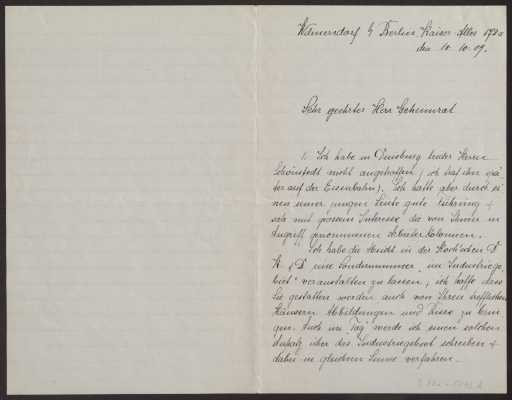 Wilmersdorf b/ Berlin, Kaiser Allee 172a
den 10. 10. 09.
Sehr geehrter Herr Geheimrat
1. Ich habe in Duisburg leider Herrn
Schönstedt nicht angetroffen, ich traf ihn spä-
ter auf der Eisenbahn). Ich hatte aber durch ei-
nen seiner jungen Leute gute Führung &
sah mit grossem Interesse die von Ihnen in
Angriff genommenen Arbeiter Kolonien.
Ich habe die Absicht in der Koch'schen D.
K. & D. eine Sondernummer, im Industriege-
biet" veranstalten zu lassen, ich hoffe dass
Sie gestatten werden auch von Ihren trefflichen
Häusern Abbildungen und Risse zu brin-
gen. Auch im Tag werde ich einen solchen
Aufsatz über das Industriegebiet schreiben &
dabei in gleichem Sinne verfahren.